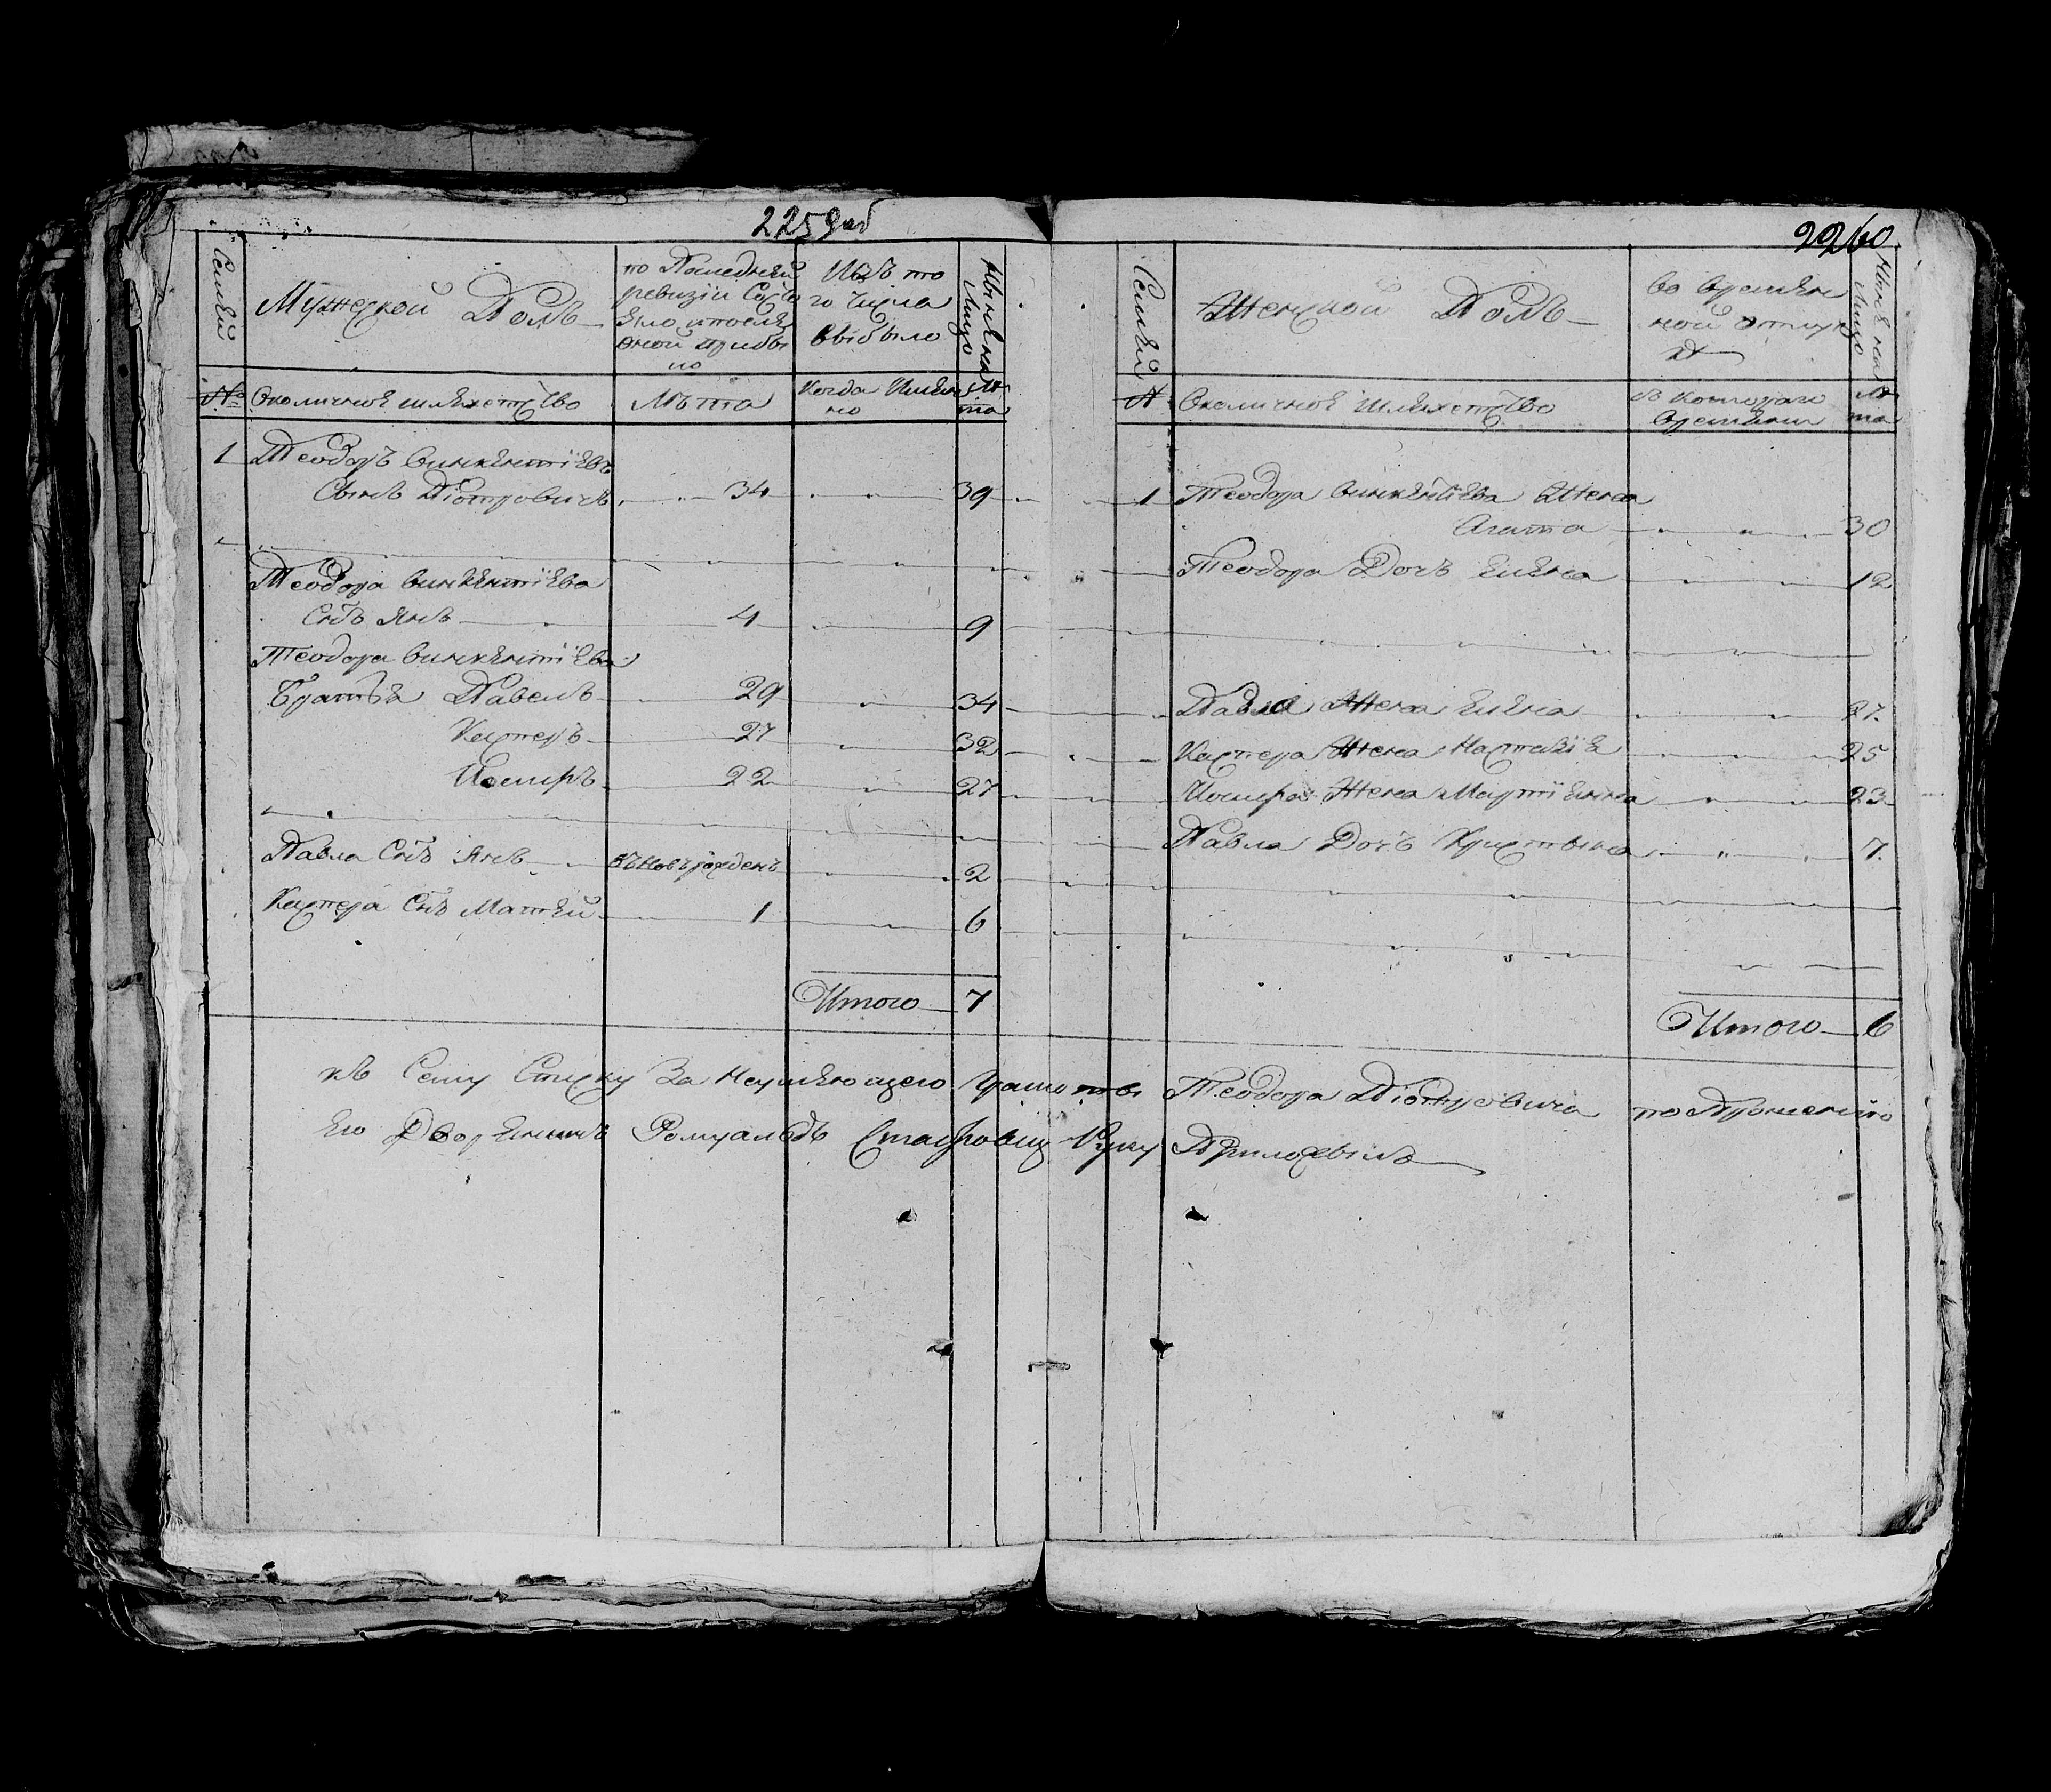 2259 об
Семей
Мужеской Полъ
по Последней
ревизіи Состо
яло и после
оной прибы
ло
Изъ то
го Числа
выбыло
Ныне на
Лицо
№
Околичное шляхетство
Лѣта
Когда Имен
но
Лѣ
та
1 Теодоръ Винкентіевъ
Сынъ Піотровичъ 34 39
Теодора Винкентіева
Снъ Янъ 4 9
Теодора Винкентіева
Братья Павелъ 29 34
Касперъ 27 32
Иосифъ 22 27
Павла Снъ Янъ вновь рожденъ 2
Каспера Снъ Матей 1 6
Итого 7
2260
Семей
Женской Полъ
во времян
ной отлуч
ке
Ныне на
Лицо
№
Околичное Шляхетство
с которого
времяни
Лѣ
та
1 Теодора Винкентіева Жена
Агата 30
Теодора Дочь Елена 12
Павла Жена Елена 27
Каспера Жена 25
Иосифа Жена Мартіянна 23
Павла Дочь Кристына 7
Итого 6
къ Сему Списку За Неумеющего грамоты Теодора Піотровича по Прошению
Его Дворенинъ Ромуальдъ Руку Приложылъ